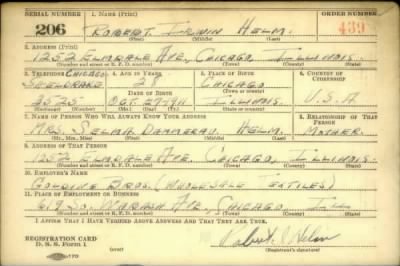 SERIAL NUMBER 1. NAME (Print) ORDER NUMBER
206 ROBERT IRWIN HELM. 439
(First) (Middle) (Last)
2. ADDRESS (Print)
1252 ELMDALE AVE, CHICAGO, ILLINOIS.
(Number and street or R. F. D. number) (Town) (County) (State)
3. TELEPHONE CHICAGO 4. AGE IN YEARS 5. PLACE OF BIRTH 6. COUNTRY OF CITIZENSHIP
SHELDRAKE 28 CHICAGO
DATE OF BIRTH
2525 OCT. 27 1911 ILLINOIS. U.S.A
(Exchange) (Number) (Mo.) (Day) (Yr.) (Town or county) (State or country)
7. NAME OF PERSON WHO WILL ALWAYS KNOW YOUR ADDRESS 8. RELATIONSHIP OF THAT PERSON
MRS. SELMA DAMMERAU HELM. MOTHER.
(Mr., Mrs., Miss) (First) (Middle) (Last)
9. ADDRESS OF THAT PERSON
1252 ELMDALE AVE. CHICAGO, ILLINOIS.
(Number and street or R. F. D. number) (Town) (County) (State)
10. EMPLOYER'S NAME
BROS. (WHOLESALE TEXTILES)
11. PLACE OF EMPLOYMENT OR BUSINESS
619 SO. WABASH AVE, CHICAGO, ILL.
(Number and street or R. F. D. number) (Town) (County) (State)
I AFFIRM THAT I HAVE VERIFIED ABOVE ANSWERS AND THAT THEY ARE TRUE.
REGISTRATION CARD
D. S. S. Form 1 Robert I Helm
(Registrant's signature)